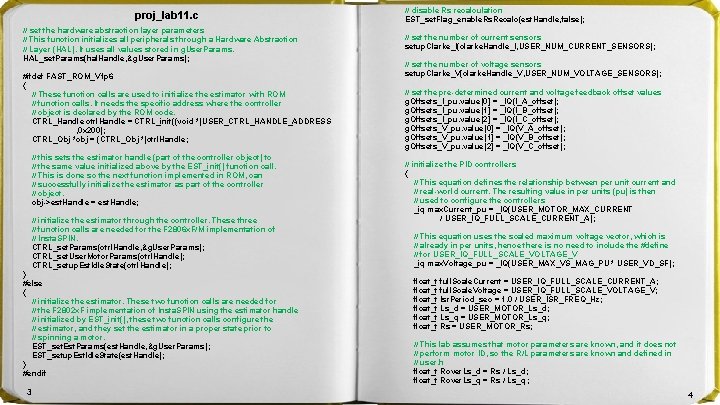 proj_lab11. c
// set the hardware abstraction layer parameters
// This function initializes all peripherals through a Hardware Abstraction
// Layer (HAL). It uses all values stored in gUser Params.
HAL_setParams(halHandle, &gUser Params);
#ifdef FAST_ROM_V1p6
{
// These function calls are used to initialize the estimator with ROM
// function calls. It needs the specific address where the controller
// object is declared by the ROM code.
CTRL_Handle ctrlHandle = CTRL_init((void *)USER_CTRL_HANDLE_ADDRESS
, 0x200);
CTRL_Obj *obj = (CTRL_Obj *)ctrlHandle;
// this sets the estimator handle (part of the controller object) to
// the same value initialized above by the EST_init() function call.
// This is done so the next function implemented in ROM, can
// successfully initialize the estimator as part of the controller
// object.
obj->estHandle = estHandle;
// initialize the estimator through the controller. These three
// function calls are needed for the F2806xF/M implementation of
// InstaSPIN.
CTRL_setParams(ctrlHandle, &gUser Params);
CTRL_setUser Motor Params(ctrlHandle);
CTRL_setupEstIdleState(ctrlHandle);
}
#else
{
// initialize the estimator. These two function calls are needed for
// the F2802xF implementation of InstaSPIN using the estimator handle
// initialized by EST_init(), these two function calls configure the
// estimator, and they set the estimator in a proper state prior to
// spinning a motor.
EST_setEst Params(estHandle, &gUser Params);
EST_setupEstIdleState(estHandle);
}
#endif
3
// disable Rs recalculation
EST_setFlag_enableRsRecalc(estHandle, false);
// set the number of current sensors
setupClarke_I(clarkeHandle_I, USER_NUM_CURRENT_SENSORS);
// set the number of voltage sensors
setupClarke_V(clarkeHandle_V, USER_NUM_VOLTAGE_SENSORS);
// set the pre-determined current and voltage feedback offset values
gOffsets_I_pu.value[0] = _IQ(I_A_offset);
gOffsets_I_pu.value[1] = _IQ(I_B_offset);
gOffsets_I_pu.value[2] = _IQ(I_C_offset);
gOffsets_V_pu.value[0] = _IQ(V_A_offset);
gOffsets_V_pu.value[1] = _IQ(V_B_offset);
gOffsets_V_pu.value[2] = _IQ(V_C_offset);
// initialize the PID controllers
{
// This equation defines the relationship between per unit current and
// real-world current. The resulting value in per units (pu) is then
// used to configure the controllers
_iq maxCurrent_pu = _IQ(USER_MOTOR_MAX_CURRENT
/ USER_IQ_FULL_SCALE_CURRENT_A);
// This equation uses the scaled maximum voltage vector, which is
// already in per units, hence there is no need to include the #define
// for USER_IQ_FULL_SCALE_VOLTAGE_V
_iq maxVoltage_pu = _IQ(USER_MAX_VS_MAG_PU * USER_VD_SF);
float_t fullScaleCurrent = USER_IQ_FULL_SCALE_CURRENT_A;
float_t fullScaleVoltage = USER_IQ_FULL_SCALE_VOLTAGE_V;
float_t IsrPeriod_sec = 1.0 / USER_ISR_FREQ_Hz;
float_t Ls_d = USER_MOTOR_Ls_d;
float_t Ls_q = USER_MOTOR_Ls_q;
float_t Rs = USER_MOTOR_Rs;
// This lab assumes that motor parameters are known, and it does not
// perform motor ID, so the R/L parameters are known and defined in
// user.h
float_t RoverLs_d = Rs / Ls_d;
float_t RoverLs_q = Rs / Ls_q;
4